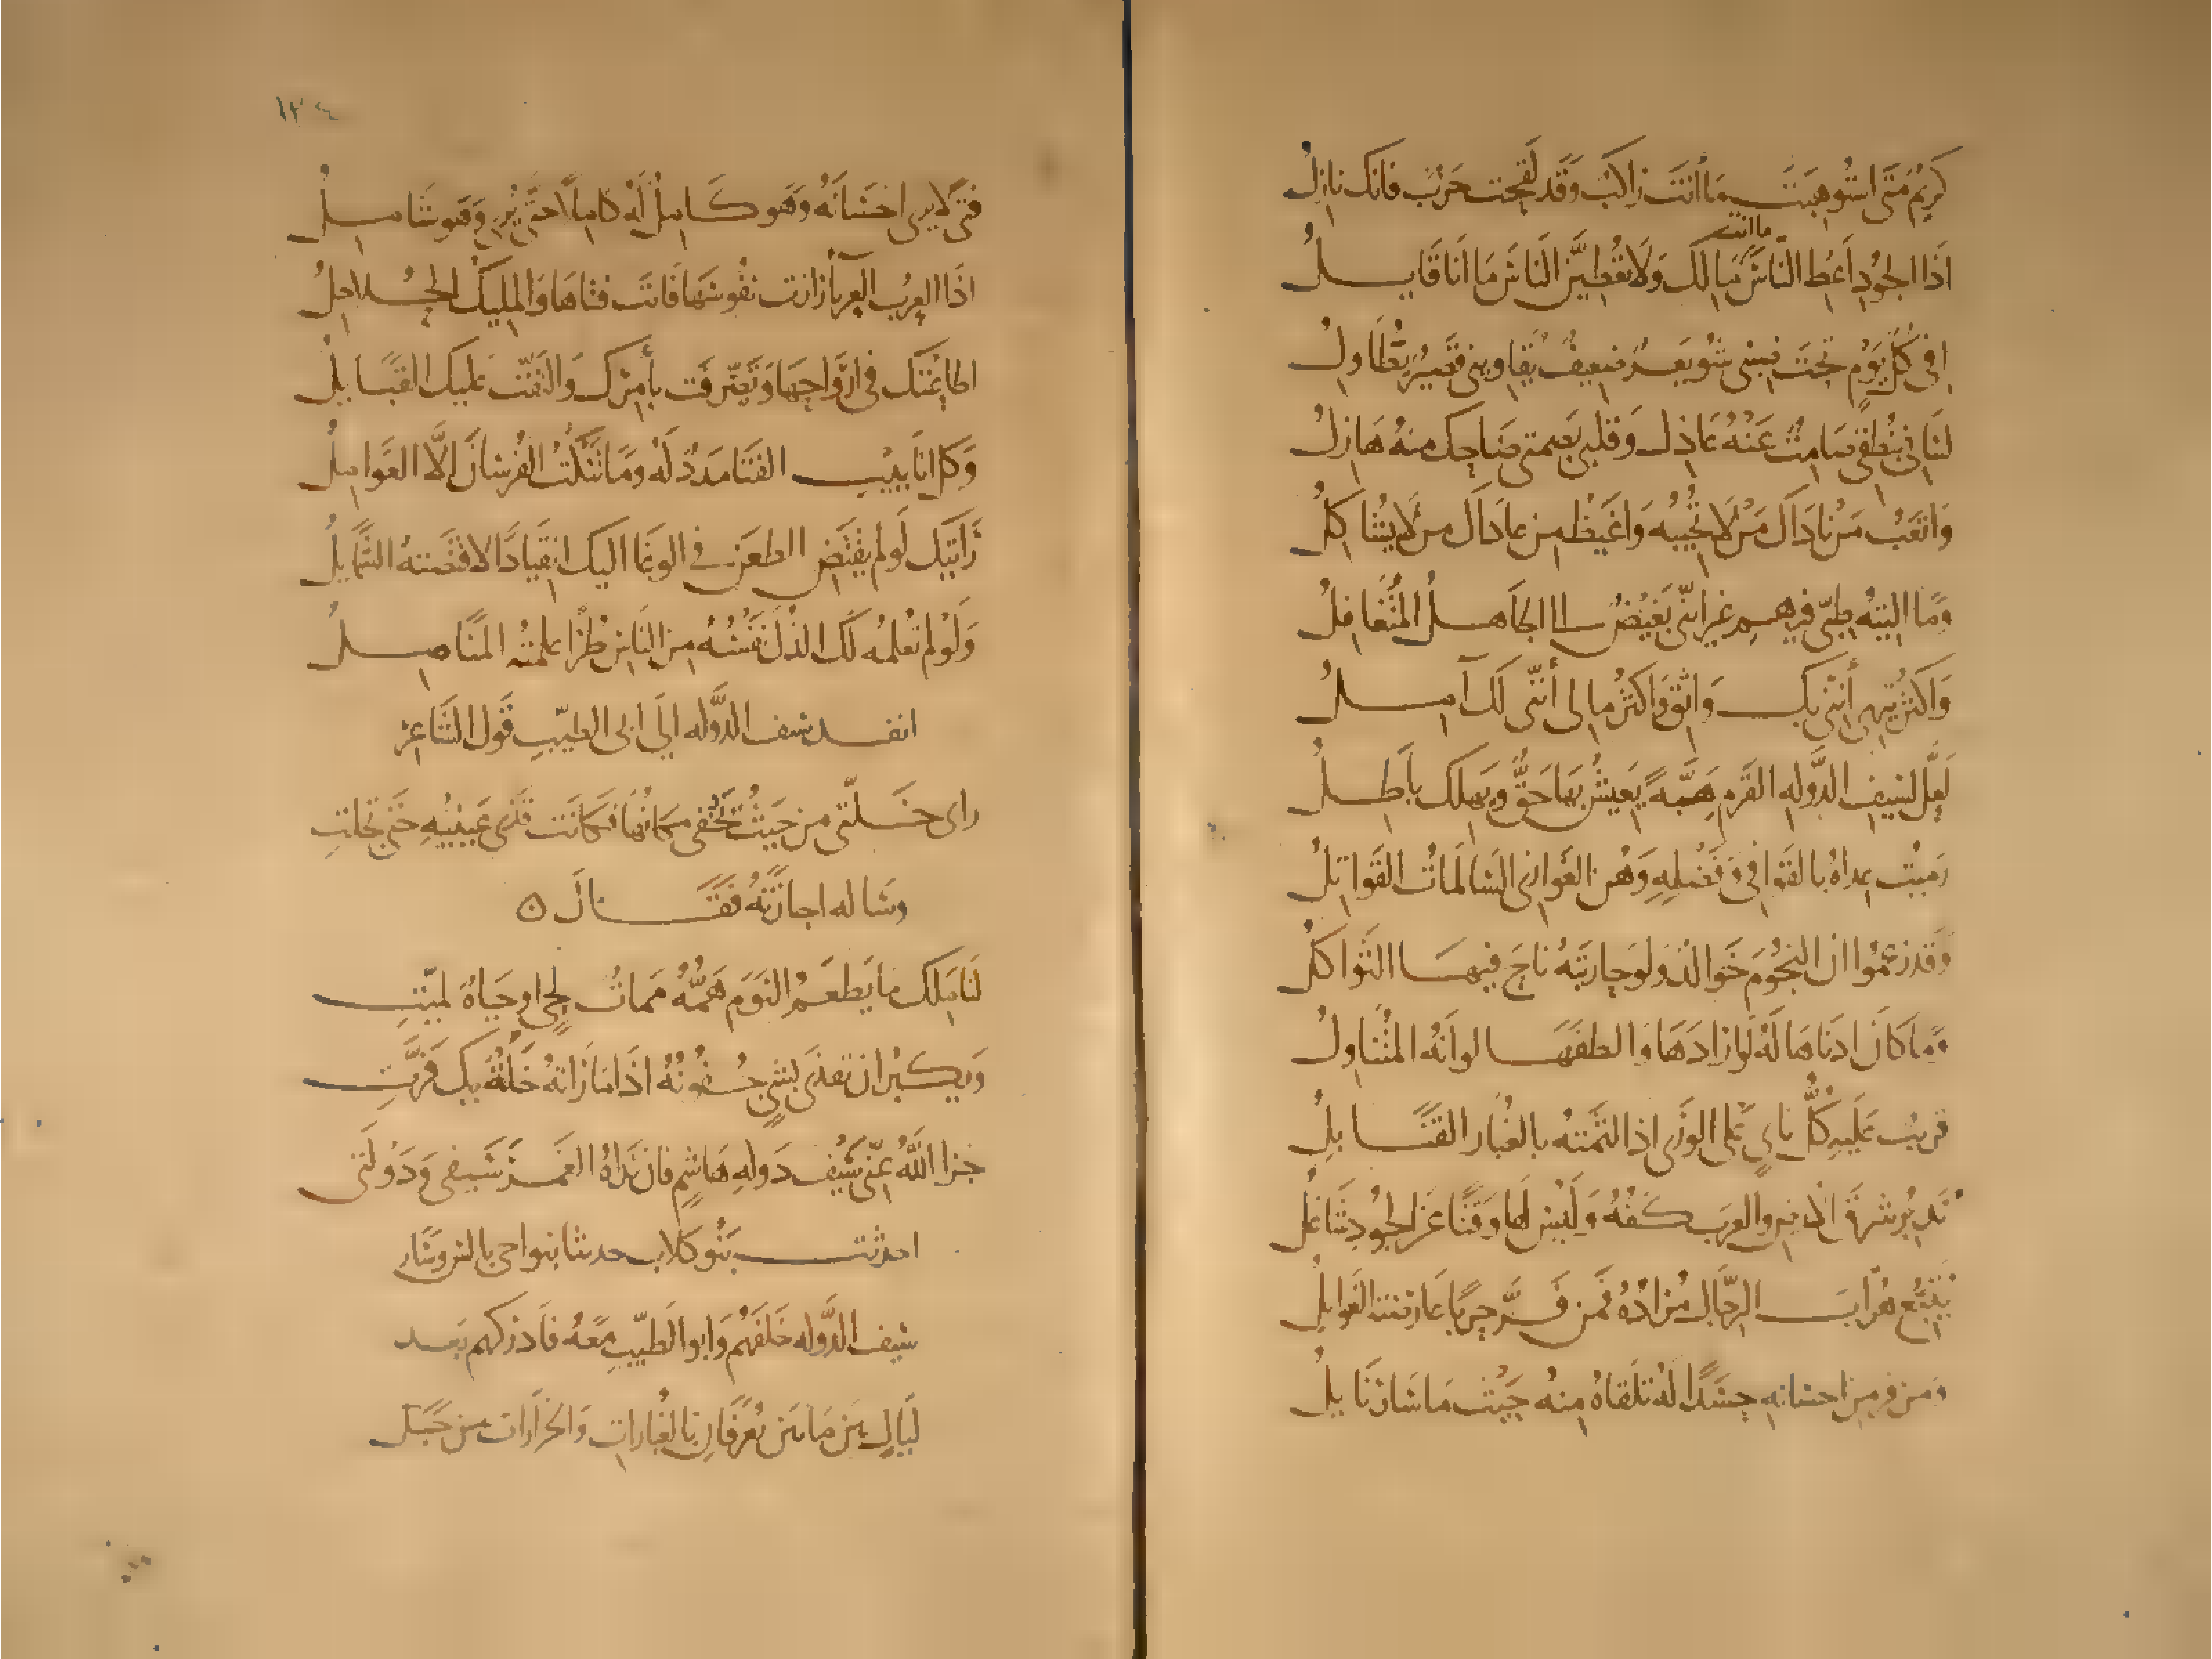 كريم متى استوهبت ما أنت راكب وقد لقحت حرب فانك نازل
ما انت
اذا الجود أعط الناس مالك ولا تعطين الناس ما انا قايل
افي كل يوم تحت ضبني شويعر ضعيف يقاويني قصير يطاول
لساني بنطقي صامت عنه عاذل وقلبي بصمتي ضاحك منه هازل
واتعب من ناداك من لا تجيبه واغيظ من عاداك من لا يشاكل
وما التيه طبي فيهم غير انني بغيض الي الجاهل المتغافل
واكثر تيهي أنني بك واثق واكثر مالي أنني لك آمل
لعل لسيف الدوله القرم هبة يعيش بها حق ويهلك باطل
رميت عداه بالقوافي وفضله وهن الغوازي السالمات القواتل
وقد زعموا ان النجوم خوالد ولو حاربته ناح فيها الثواكل
وما كان ادناها له لو ارادها والطفها لو انه المتناول
قريب عليه كل ناي على الورى اذا لثمته بالغبار القنابل
تدبر شرق الارض والغرب كفه وليس لها وقتا عن الجود شاغل
يتبع هراب الرجال مراده فمن فر حربا عارضته الغوايل
ومن فر من احسانه حسدا له تلقاه منه حيث ما سار نايل
١٣٤
فتى لا يرى احسانه وهو كامل له كاملا حتى يرى وهو شامل
اذا العرب العرباء رازت نفوسها فانت فتاها والمليك الحلاحل
اطاعتك في ارواحها وتصرفت بأمرك والتفت عليك القبايل
وكل انابيب القنا مدد له وما تنكت الفرسان الا العوامل
رأيتك لو لم يقتض الطعن في الوغا اليك انقيادا لاقتضته الشمايل
ولو لم تعلمه لك الذل نفسه من الناس طرا علمته المناصل
انفد سيف الدوله الى ابي الطيب قول الشاعر
راى خلتي من حيث يخفى مكانها فكانت قذى عينيه حتى تجلت
وساله اجازته فقال ه
لنا ملك ما يطعم النوم همه ممات لحي او حياة لميت
ويكبر ان تقذى بشي جفونه اذا ما راته خلة بك فرت
جزا الله عني سيف دوله هاشم فان نداه الغمر سيفي ودولتي
احدثت بنو كلاب حدثا بنواحي بالس وسار
سيف الدوله خلفهم وابو الطيب معه فادركهم بعد
ليال بين ماين تعرفان بالغبارات والخرارات من جبل